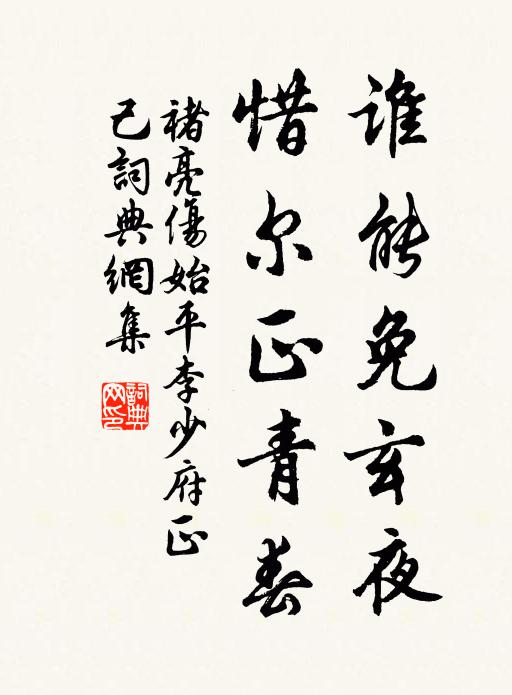 谁能免玄夜
惜尔正青春
褚亮傷始平李少府正
己詞典網集
詞典
网印